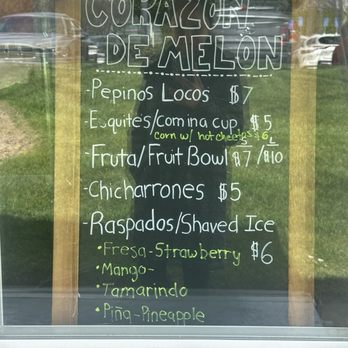 CORAZON
DE MELON
-Pepinos Locos $7
-Esquites/corn in a cup $5
corn w/ hot cheetos $6
S L
-Fruta/Fruit Bowl $7/$10
-Chicharrones $5
-Raspados/Shaved Ice
•Fresa-Strawberry $6
•Mango-
•Tamarindo
•Piña-Pineapple